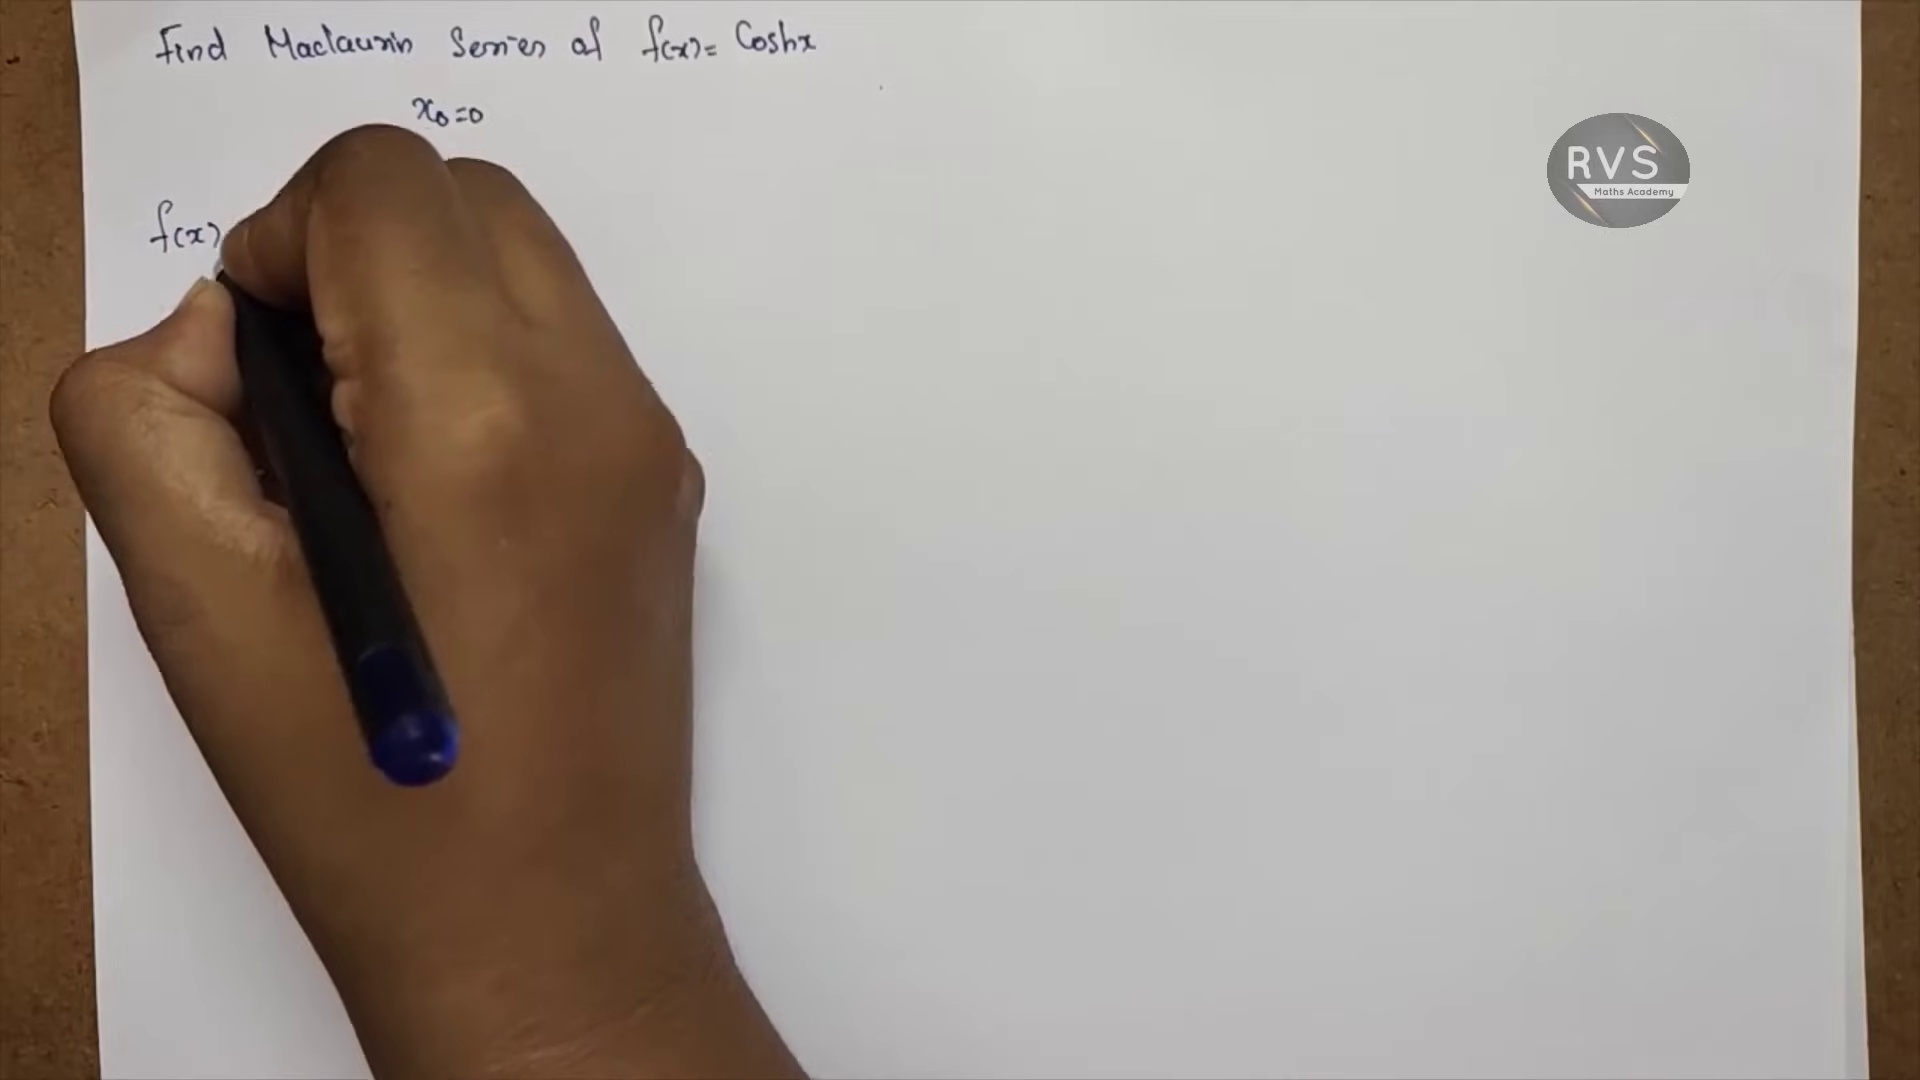 Find Maclaurin Series of f(x) = Coshx
x₀=0
f(x)
RVS
Maths Academy